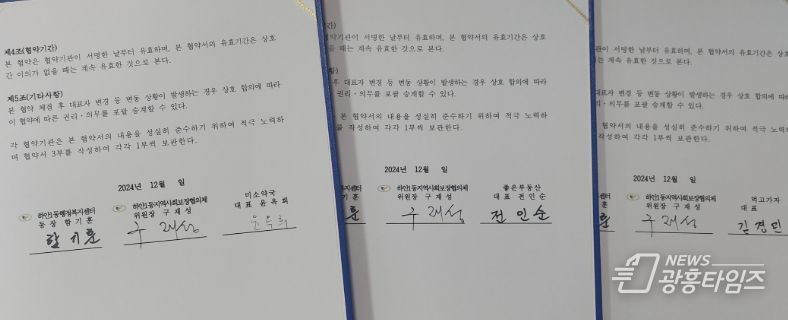 제4조(협약기간)
본 협약은 협약기관이 서명한 날부터 유효하며, 본 협약서의 유효기간은 상호
간 이의가 없을 때는 계속 유효한 것으로 본다.
제5조(기타사항)
본 협약 체결 후 대표자 변경 등 변동 상황이 발생하는 경우 상호 합의에 따라
이 협약에 따른 권리·의무를 포괄 승계할 수 있다.
각 협약기관은 본 협약서의 내용을 성실히 준수하기 위하여 적극 노력하
며 협약서 3부를 작성하여 각각 1부씩 보관한다.
2024년 12월 일
하안1동행정복지센터
동장 함기훈
함기훈
하안1동지역사회보장협의체
위원장 구재성
구재성
미소약국
대표 윤옥희
윤옥희
간)
협약기관이 서명한 날부터 유효하며, 본 협약서의 유효기간은 상호
없을 때는 계속 유효한 것으로 본다.
항)
후 대표자 변경 등 변동 상황이 발생하는 경우 상호 합의에 따라
권리·의무를 포괄 승계할 수 있다.
본 협약서의 내용을 성실히 준수하기 위하여 적극 노력하
를 작성하여 각각 1부씩 보관한다.
2024년 12월 일
복지센터
기훈
훈
하안1동지역사회보장협의체
위원장 구재성
구재성
좋은부동산
대표 전인순
전인순
관이 서명한 날부터 유효하며, 본 협약서의 유효기간은 상호
는 계속 유효한 것으로 본다.
표자 변경 등 변동 상황이 발생하는 경우 상호 합의에 따라
의무를 포괄 승계할 수 있다.
협약서의 내용을 성실히 준수하기 위하여 적극 노력하
하여 각각 1부씩 보관한다.
2024년 12월 일
센터
훈
훈
하안1동지역사회보장협의체
위원장 구재성
구재성
먹고가자
대표
김경민
NEWS
광흥타임즈